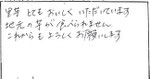 里芋とてもおいしくいただいています
地元の芋が食べられません
これからもよろしくお願いします